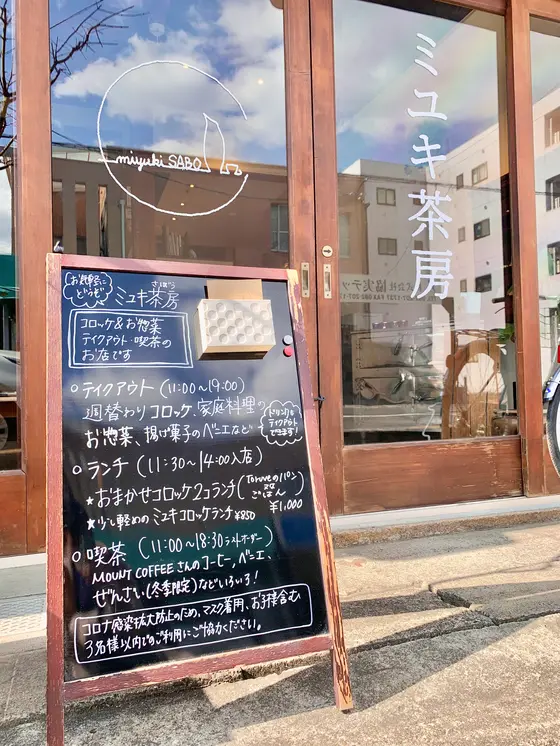 miyuki SABO
ミユキ茶房
お気軽に
どうぞ
さぼう
ミユキ茶房
コロッケ&お惣菜
テイクアウト・喫茶の
お店です
○テイクアウト (11:00〜19:00)
週替わりコロッケ、家庭料理の
お惣菜、揚げ菓子のベニエなど
ドリンクも
テイクアウト
できます!
○ランチ (11:30〜14:00入店)
★おまかせコロッケ2コランチ(Toruveのパン
又は
ごはん)
¥1,000
★少し軽めのミユキコロッケランチ ¥850
○喫茶 (11:00〜18:30ラストオーダー)
MOUNT COFFEEさんのコーヒー、ベニエ、
ぜんざい(冬季限定)などいろいろ!
コロナ感染拡大防止のため、マスク着用、お子様含む
3名様以内でのご利用にご協力ください。